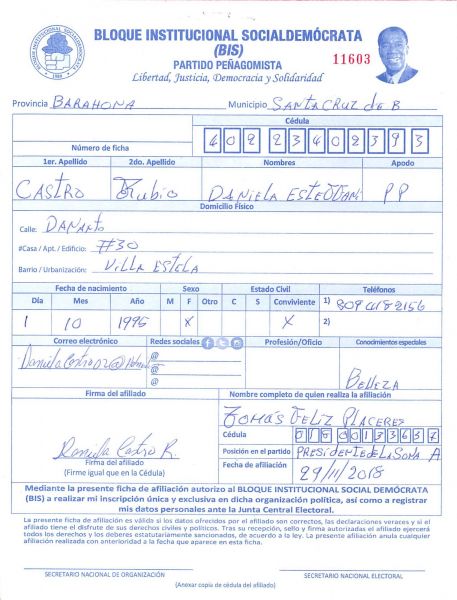 BLOQUE INSTITUCIONAL SOCIALDEMÓCRATA
(BIS)
PARTIDO PEÑAGOMISTA
Libertad, Justicia, Democracia y Solidaridad
11603
Provincia BARAHONA Municipio SANTA CRUZ de B
Cédula
Número de ficha 40223402393
1er. Apellido 2do. Apellido Nombres Apodo
CASTRO Rubio DANIELA PP
Domicilio Físico
Calle:
#Casa / Apt. / Edificio: #30
Barrio / Urbanización: VILLA ESTELA
Fecha de nacimiento Sexo Estado Civil Teléfonos
Día Mes Año M F Otro C S Conviviente 1) 809 4182156
1 10 1995 X X 2)
Correo electrónico Redes sociales Profesión/Oficio Conocimientos especiales
@
@
@
BELLEZA
Firma del afiliado Nombre completo de quien realiza la afiliación
TOMÁS FELIZ PLACERES
Cédula
Daniela Castro R.
Posición en el partido PRESIDENTE DE LA SOMA A
Firma del afiliado
(Firme igual que en la Cédula)
Fecha de afiliación 29/11/2018
Mediante la presente ficha de afiliación autorizo al BLOQUE INSTITUCIONAL SOCIAL DEMÓCRATA
(BIS) a realizar mi inscripción única y exclusiva en dicha organización política, así como a registrar
mis datos personales ante la Junta Central Electoral.
La presente ficha de afiliación es válido si los datos ofrecidos por el afiliado son correctos, las declaraciones veraces y si el afiliado
tiene el disfrute de sus derechos civiles y políticos. Tras su recepción, sello y firma autorizadas el afiliado ejercerá
todos los derechos y los deberes estatutariamente sancionados, de acuerdo a la ley. La presente afiliación anula cualquier
afiliación realizada con anterioridad a la fecha que aparece en esta ficha.
SECRETARIO NACIONAL DE ORGANIZACIÓN SECRETARIO NACIONAL ELECTORAL
(Anexar copia de cédula del afiliado)